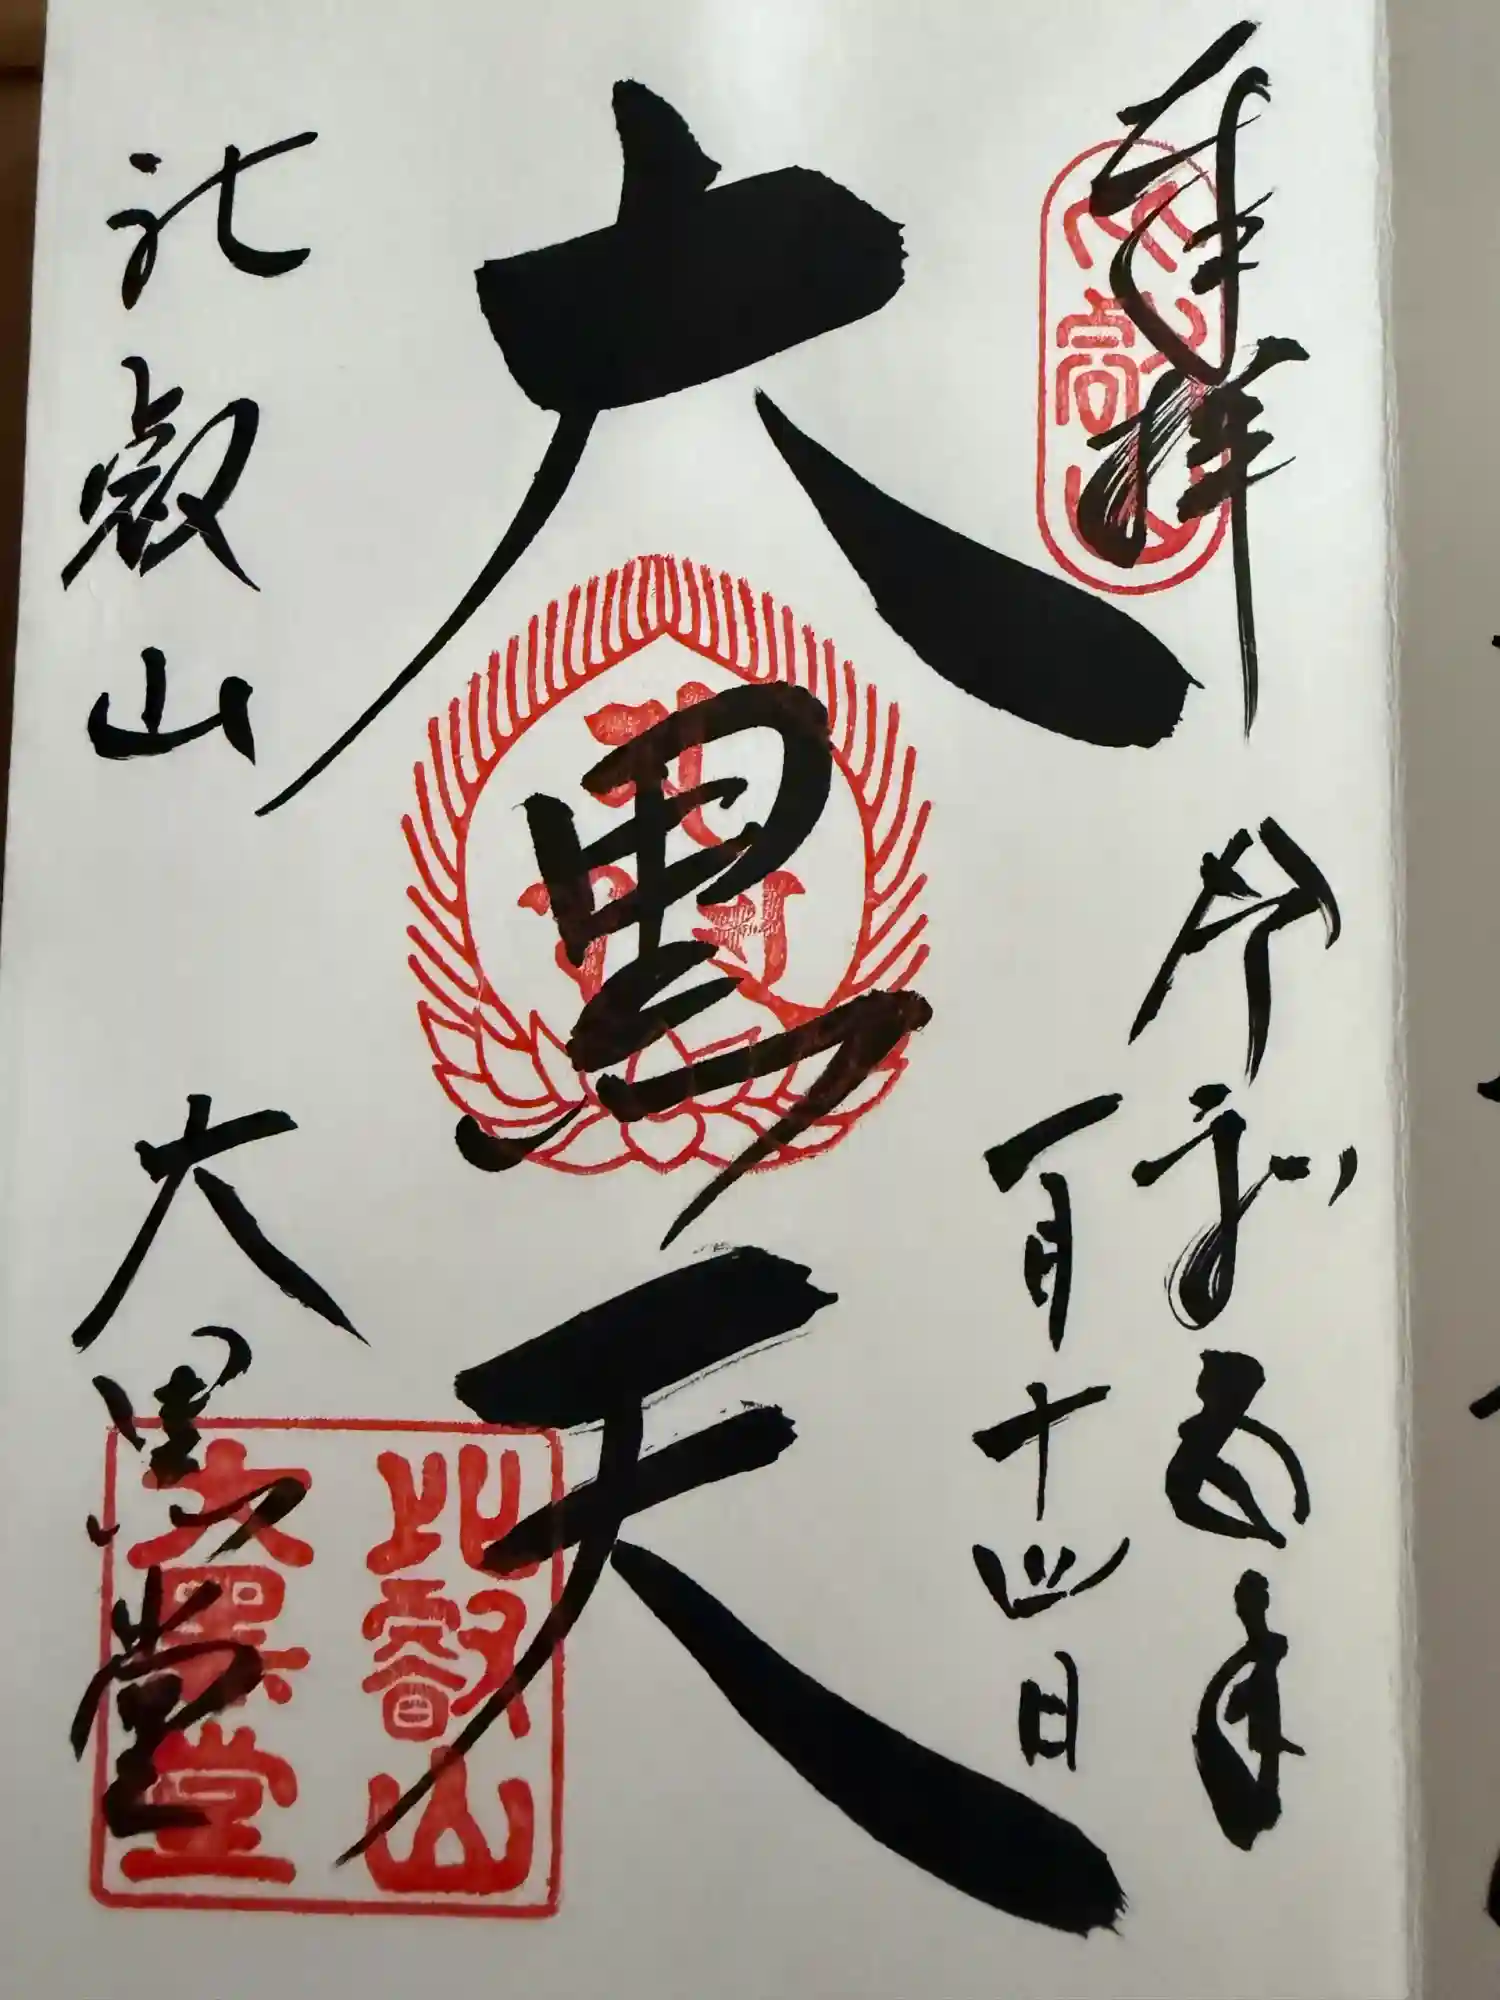 奉拝
令和五年
一月十四日
大黒天
比叡山
大黒堂
比叡山
大黑堂